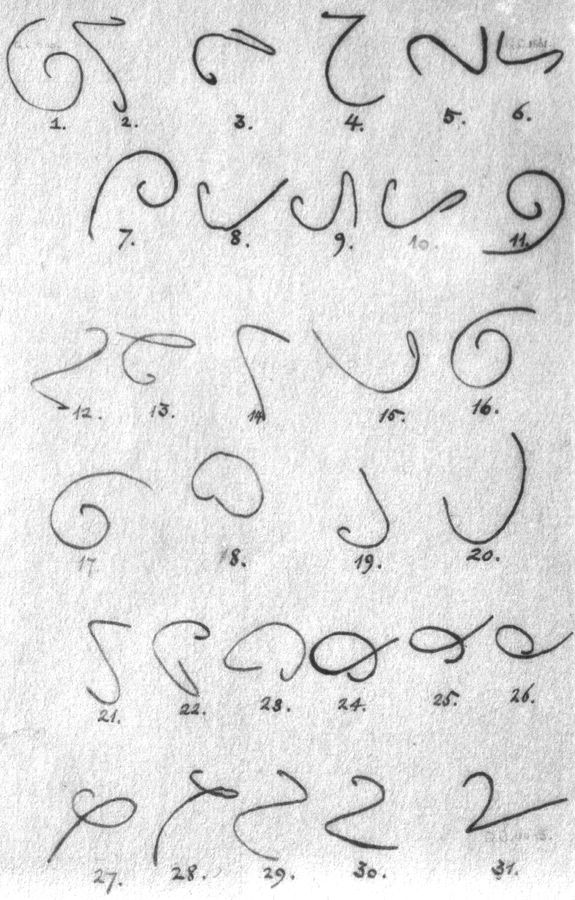 1. 2. 3. 4. 5. 6.
7. 8. 9. 10. 11.
12. 13. 14 15. 16.
17 18. 19. 20.
21. 22. 23. 24. 25. 26.
27. 28. 29. 30. 31.